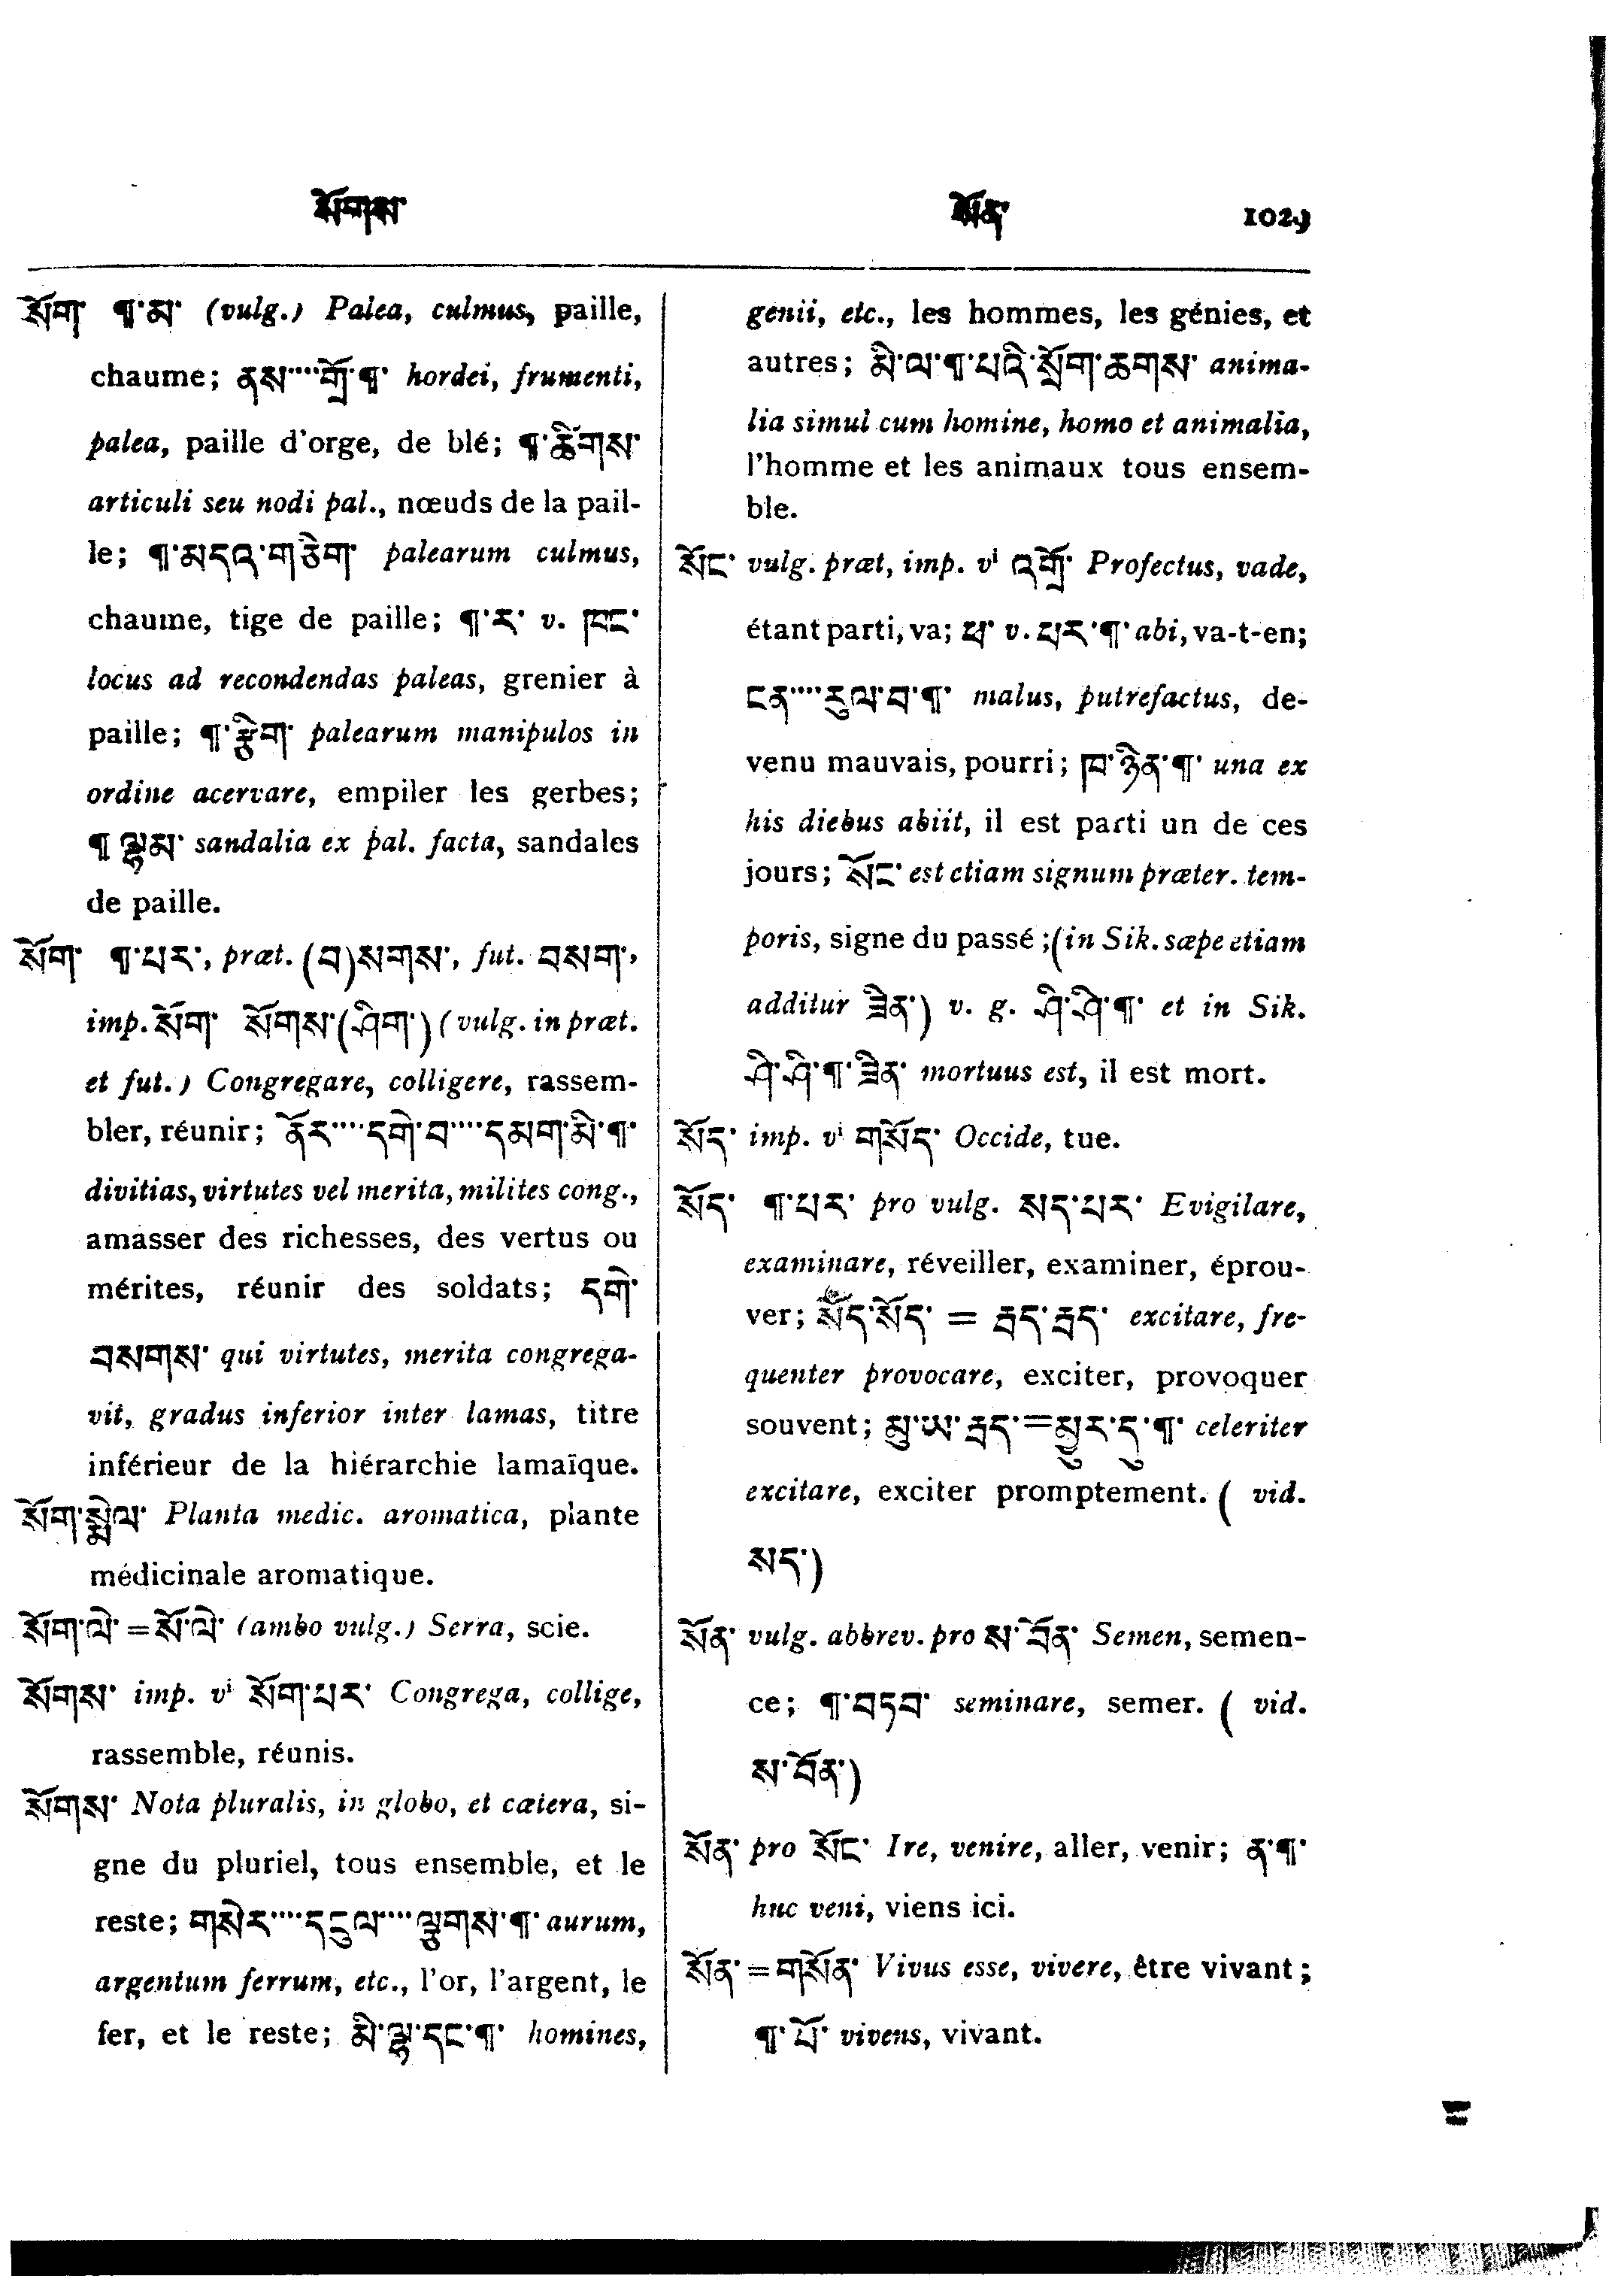 སོགས་ སོན་ 1029
སོག་ ¶་མ་ (vulg.) Palea, culmus, paille,
chaume; ནས་····གྲོ་¶་ hordei, frumenti,
palea, paille d'orge, de blé; ¶་ཚིགས་
articuli seu nodi pal., nœuds de la pail-
le; ¶་མདའ་གཅིག་ palearum culmus,
chaume, tige de paille; ¶་ར་ v. ཁང་
locus ad recondendas paleas, grenier à
paille; ¶་རྩིག་ palearum manipulos in
ordine acervare, empiler les gerbes;
¶ ལྷམ་ sandalia ex pal. facta, sandales
de paille.
སོག་ ¶་པར་, præt. (བ)སགས་, fut. བསག་,
imp. སོག་ སོགས་(ཤིག་) (vulg. in præt.
et fut.) Congregare, colligere, rassem-
bler, réunir; ནོར་····དགེ་བ་····དམག་མི་¶་
divitias, virtutes vel merita, milites cong.,
amasser des richesses, des vertus ou
mérites, réunir des soldats; དགེ་
བསགས་ qui virtutes, merita congrega-
vit, gradus inferior inter lamas, titre
inférieur de la hiérarchie lamaïque.
སོག་སྨེལ་ Planta medic. aromatica, plante
médicinale aromatique.
སོག་ལེ་ = སོ་ལེ་ (ambo vulg.) Serra, scie.
སོགས་ imp. vⁱ སོག་པར་ Congrega, collige,
rassemble, réunis.
སོགས་ Nota pluralis, in globo, et cætera, si-
gne du pluriel, tous ensemble, et le
reste; གསེར་····དངུལ་····ལྕགས་¶་ aurum,
argentum ferrum, etc., l'or, l'argent, le
fer, et le reste; མི་ལྷ་དང་¶་ homines,
genii, etc., les hommes, les génies, et
autres; མི་ལ་¶་པའི་སྲོག་ཆགས་ anima-
lia simul cum homine, homo et animalia,
l'homme et les animaux tous ensem-
ble.
སོང་ vulg. præt, imp. vⁱ འགྲོ་ Profectus, vade,
étant parti, va; ཕ་ v. པར་¶་ abi, va-t-en;
ངན་····རུལ་བ་¶་ malus, putrefactus, de-
venu mauvais, pourri; ཁ་ཉིན་¶་ una ex
his diebus abiit, il est parti un de ces
jours; སོང་ est etiam signum præter. tem-
poris, signe du passé ;(in Sik. sæpe etiam
additur ཟིན་) v. g. ཤི་ཤི་¶་ et in Sik.
ཤི་ཤི་¶་ཟིན་ mortuus est, il est mort.
སོད་ imp. vⁱ གསོད་ Occide, tue.
སོད་ ¶་པར་ pro vulg. སད་པར་ Evigilare,
examinare, réveiller, examiner, éprou-
ver; སོད་སོད་ = རྦད་རྦད་ excitare, fre-
quenter provocare, exciter, provoquer
souvent; མུ་ཨ་རྦད་=མྱུར་དུ་¶་ celeriter
excitare, exciter promptement. ( vid.
སད་)
སོན་ vulg. abbrev. pro ས་བོན་ Semen, semen-
ce; ¶་བཏབ་ seminare, semer. ( vid.
ས་བོན་)
སོན་ pro སོང་ Ire, venire, aller, venir; ན་¶་
huc veni, viens ici.
སོན་ = གསོན་ Vivus esse, vivere, être vivant ;
¶་པོ་ vivens, vivant.